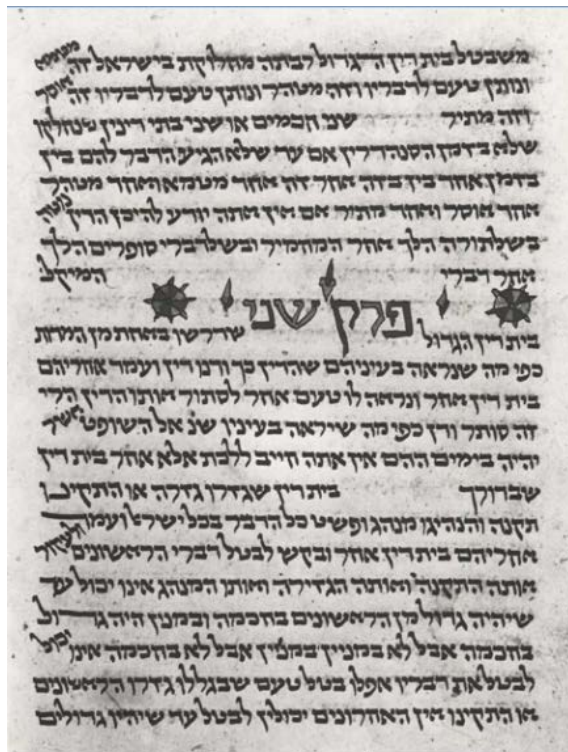 משבטל בית דין הגדול רבתה מחלוקת בישראל זה מטמא
ונותן טעם לדבריו וזה מטהר ונותן טעם לדבריו זה אוסר
וזה מתיר שני חכמים או שני בתי דינין שנחלקו
שלא בזמן הסנהדרין אם עד שלא הגיע הדבר להם בין
בזמן אחד בין בזה אחר זה אחד מטמא ואחד מטהר
אחד אוסר ואחד מתיר אם אין אתה יודע להיכן הדין נוטה
בשלתורה הלך אחר המחמיר ובשלדברי סופרים הלך
אחר דברי המיקל
פרק שני
בית דין הגדול שדרשו באחת מן המדות
כפי מה שנראה בעיניהם שהדין כך ודנו דין ועמד אחריהם
בית דין אחר ונראה לו טעם אחר לסתור אותו הדין הרי
זה סותר ודן כפי מה שייראה בעיניו שנ אל השופט אשר
יהיה בימים ההם אין אתה חייב ללכת אלא אחר בית דין
שבדורך בית דין שגזרו גזרה או התקינו
תקנה והנהיגו מנהג ופשט כל הדבר בכל ישרא ועמד
אחריהם בית דין אחר ובקש לבטל דברי הראשונים ולעקור
אותה התקנה ואותה הגזירה ואותו המנהג אינו יכול עד
שיהיה גדול מן הראשונים בחכמה ובמנין היה גדול
בחכמה אבל לא במניין במניין אבל לא בחכמה אינו יכול
לבטל את דבריו אפלו בטל טעם שבגללו גזרו הראשונים
או התקינו אין האחרונים יכולין לבטל עד שיהיו גדולים